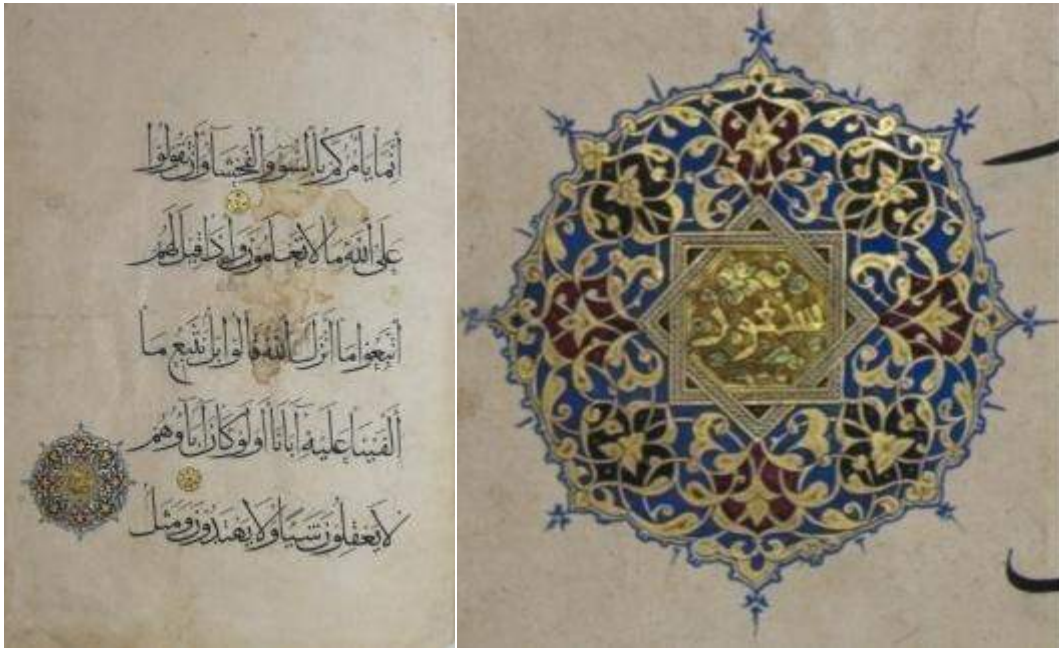 إنما يأمركم بالسوء والفحشا وأن تقولوا
على الله ما لا تعلمون وإذا قيل لهم
اتبعوا ما أنزل الله قالوا بل نتبع ما
ألفينا عليه آبانا أولو كان آباوهم
لا يعقلون شيئا ولا يهتدون ومثل
ستون